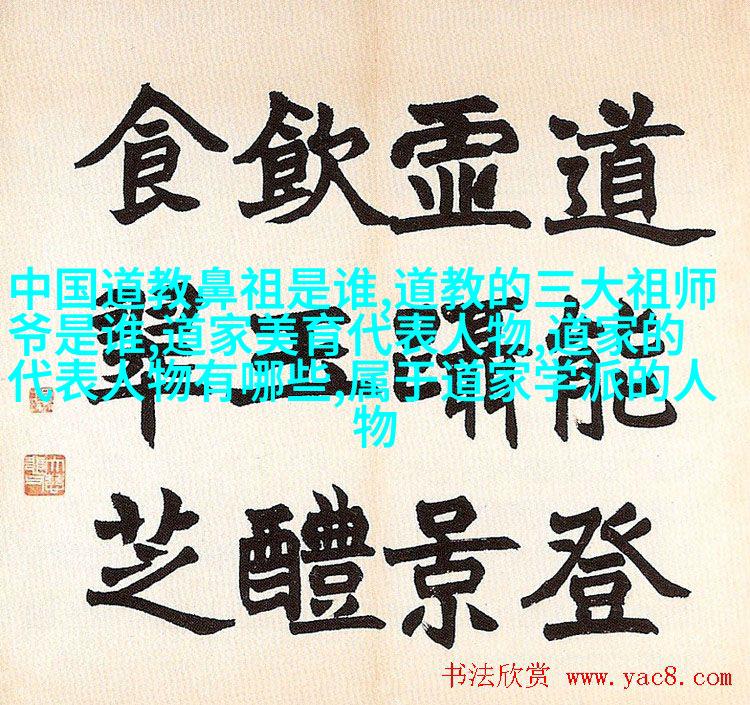 道能登
虚景
飲玉醴
食芝
中国道教鼻祖是谁,道教的三大祖师
爷是谁,道家美育代表人物,道家的
代表人物有哪些,属于道家学派的人
物
书法欣赏 www.yac8.com